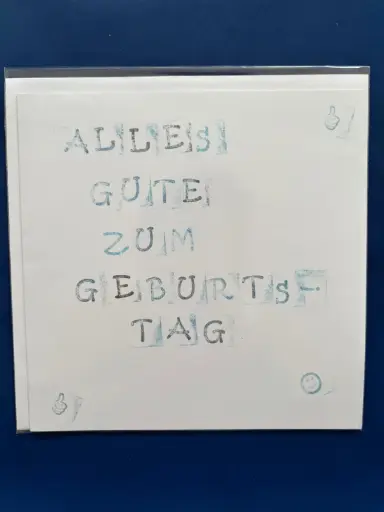 ALLES
GUTE
ZUM
GEBURTS-
TAG